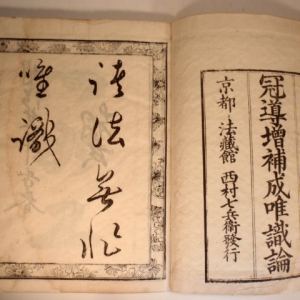 冠導增補成唯識論
京都 法藏館 西村七兵衛發行
諸法無非
唯識